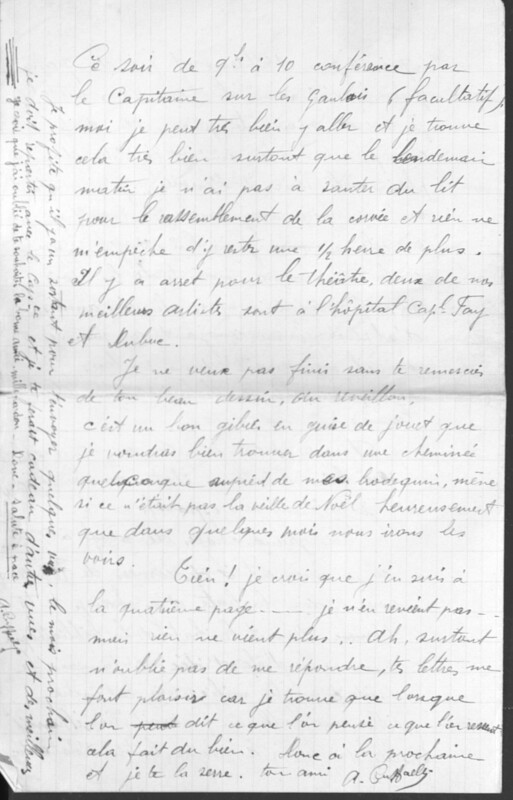 Ce soir de 9h à 10 conférence par
le Capitaine sur les Gaulois (facultatif)
moi je peut très bien y aller et je trouve
cela très bien surtout que le lendemain
matin je n'ai pas à sauter du lit
pour le rassemblement de la corvée et rien ne
m'empêche d'y rester une 1/2 heure de plus.
Il y a arret pour le théâtre, deux de nos
meilleurs artistes sont à l'hôpital Cap. Fay
et Dubuc.
Je ne veux pas finir sans te remercier
de ton beau dessin, du réveillon,
c'est un bon gibier en guise de jouet que
je voudrais bien trouver dans une cheminée
quelconque aupied de mes brodequins, même
si ce n'était pas la veille de Noël heureusement
que dans quelques mois nous irons les
voirs.
Tiens! je crois que j'en suis à
la quatième page --- je n'en revient pas -
mais rien ne vient plus... Ah, surtout
n'oublie pas de me répondre, tes lettres me
font plaisir car je trouve que lorsque
l'on peut dit ce que l'on pense ce que l'on ressent
cela fait du bien. Donc à la prochaine
et je te la serre. ton ami A.
Je profite qu'il y a un sortant pour t'envoyer quelques vues, le mois prochain
je doit repartir avec le et je te ferait cadeau d'autres vues, et des meilleures
je crois que j'ai oublié de te souhaiter la bonne année